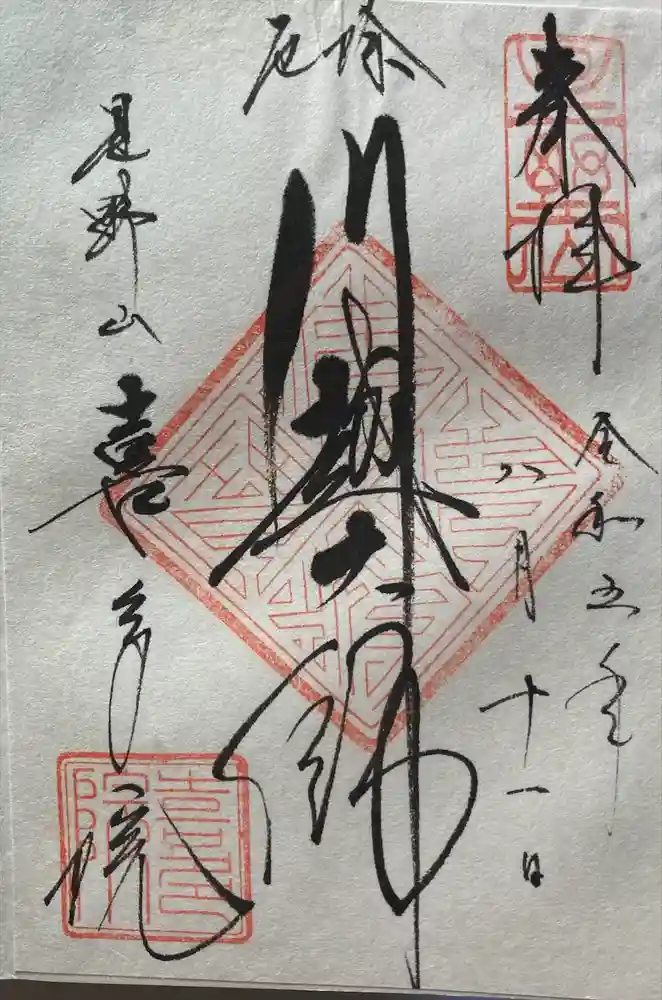 奉拝
令和五年
八月十一日
厄除
川越大師
星野山喜多院
喜多院